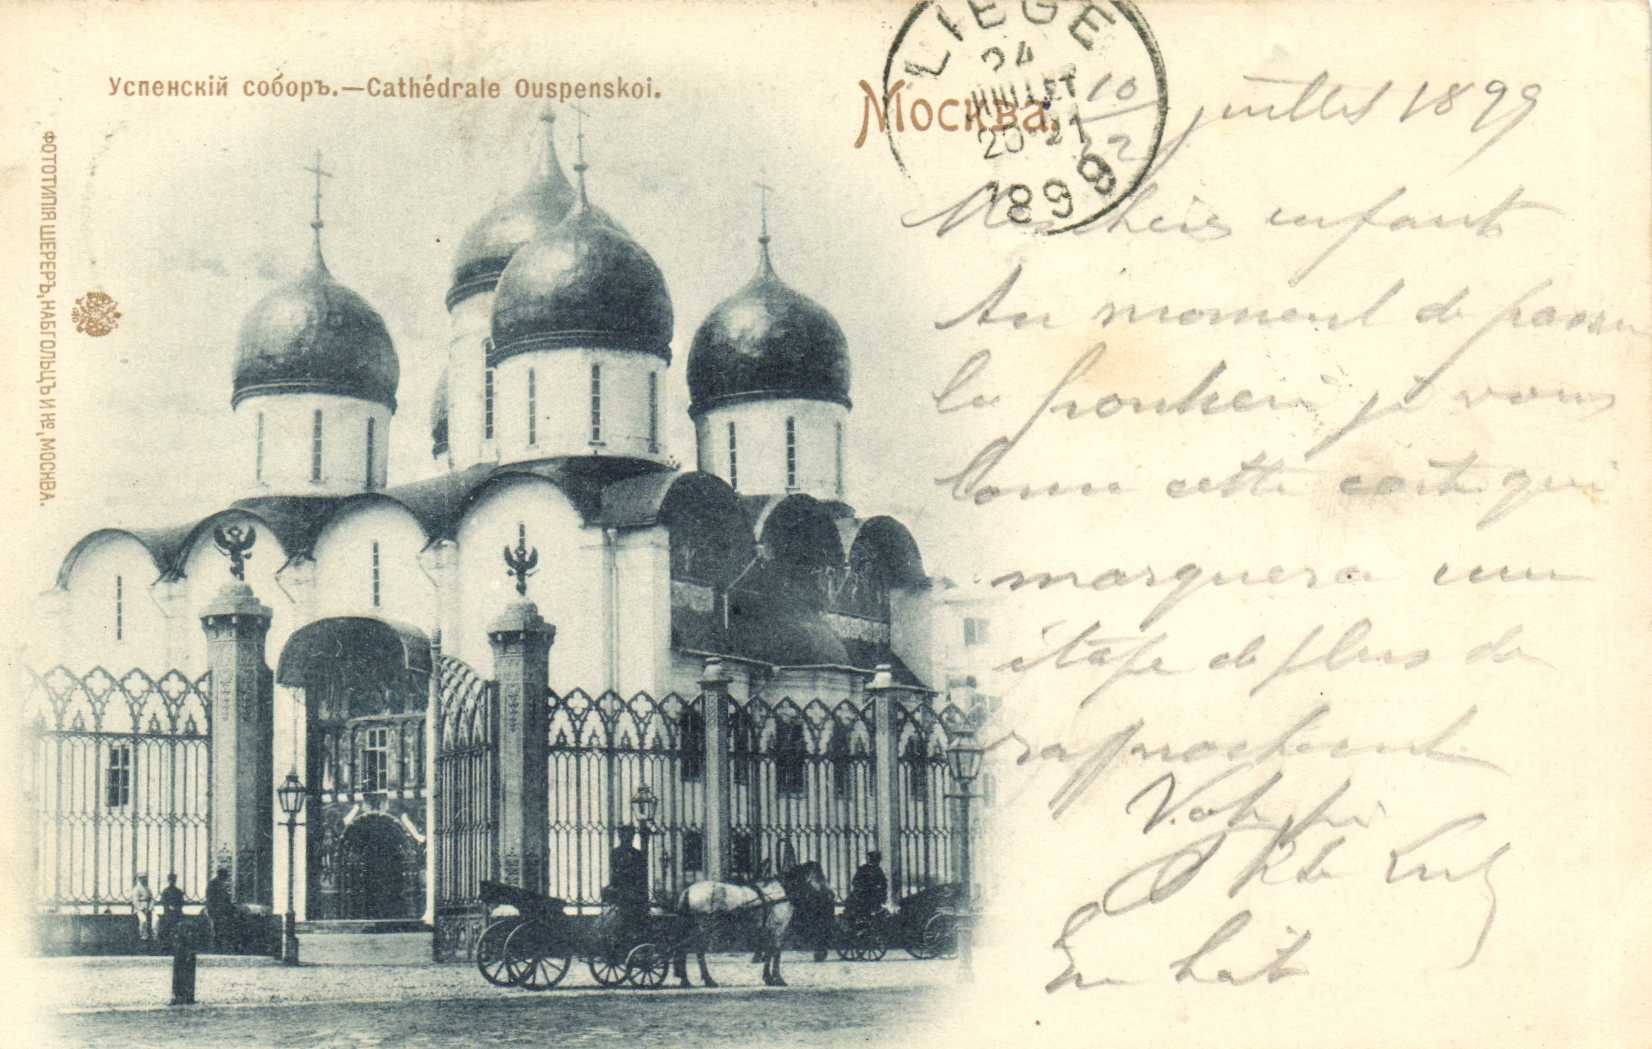 Успенскій соборъ.—Cathédrale Ouspenskoi.
Москва.
LIEGE
24
JUILLET
20-21
1899
ФОТОТИПІЯ ШЕРЕРЪ, НАБГОЛЬЦЪ И Ко, МОСКВА.
10/22 juillet 1899
Mes chers enfants
Au moment de passer
la frontière je vous
donne cette carte qui
marquera une
étape de plus de
rapprochement
Votre père
En hâte